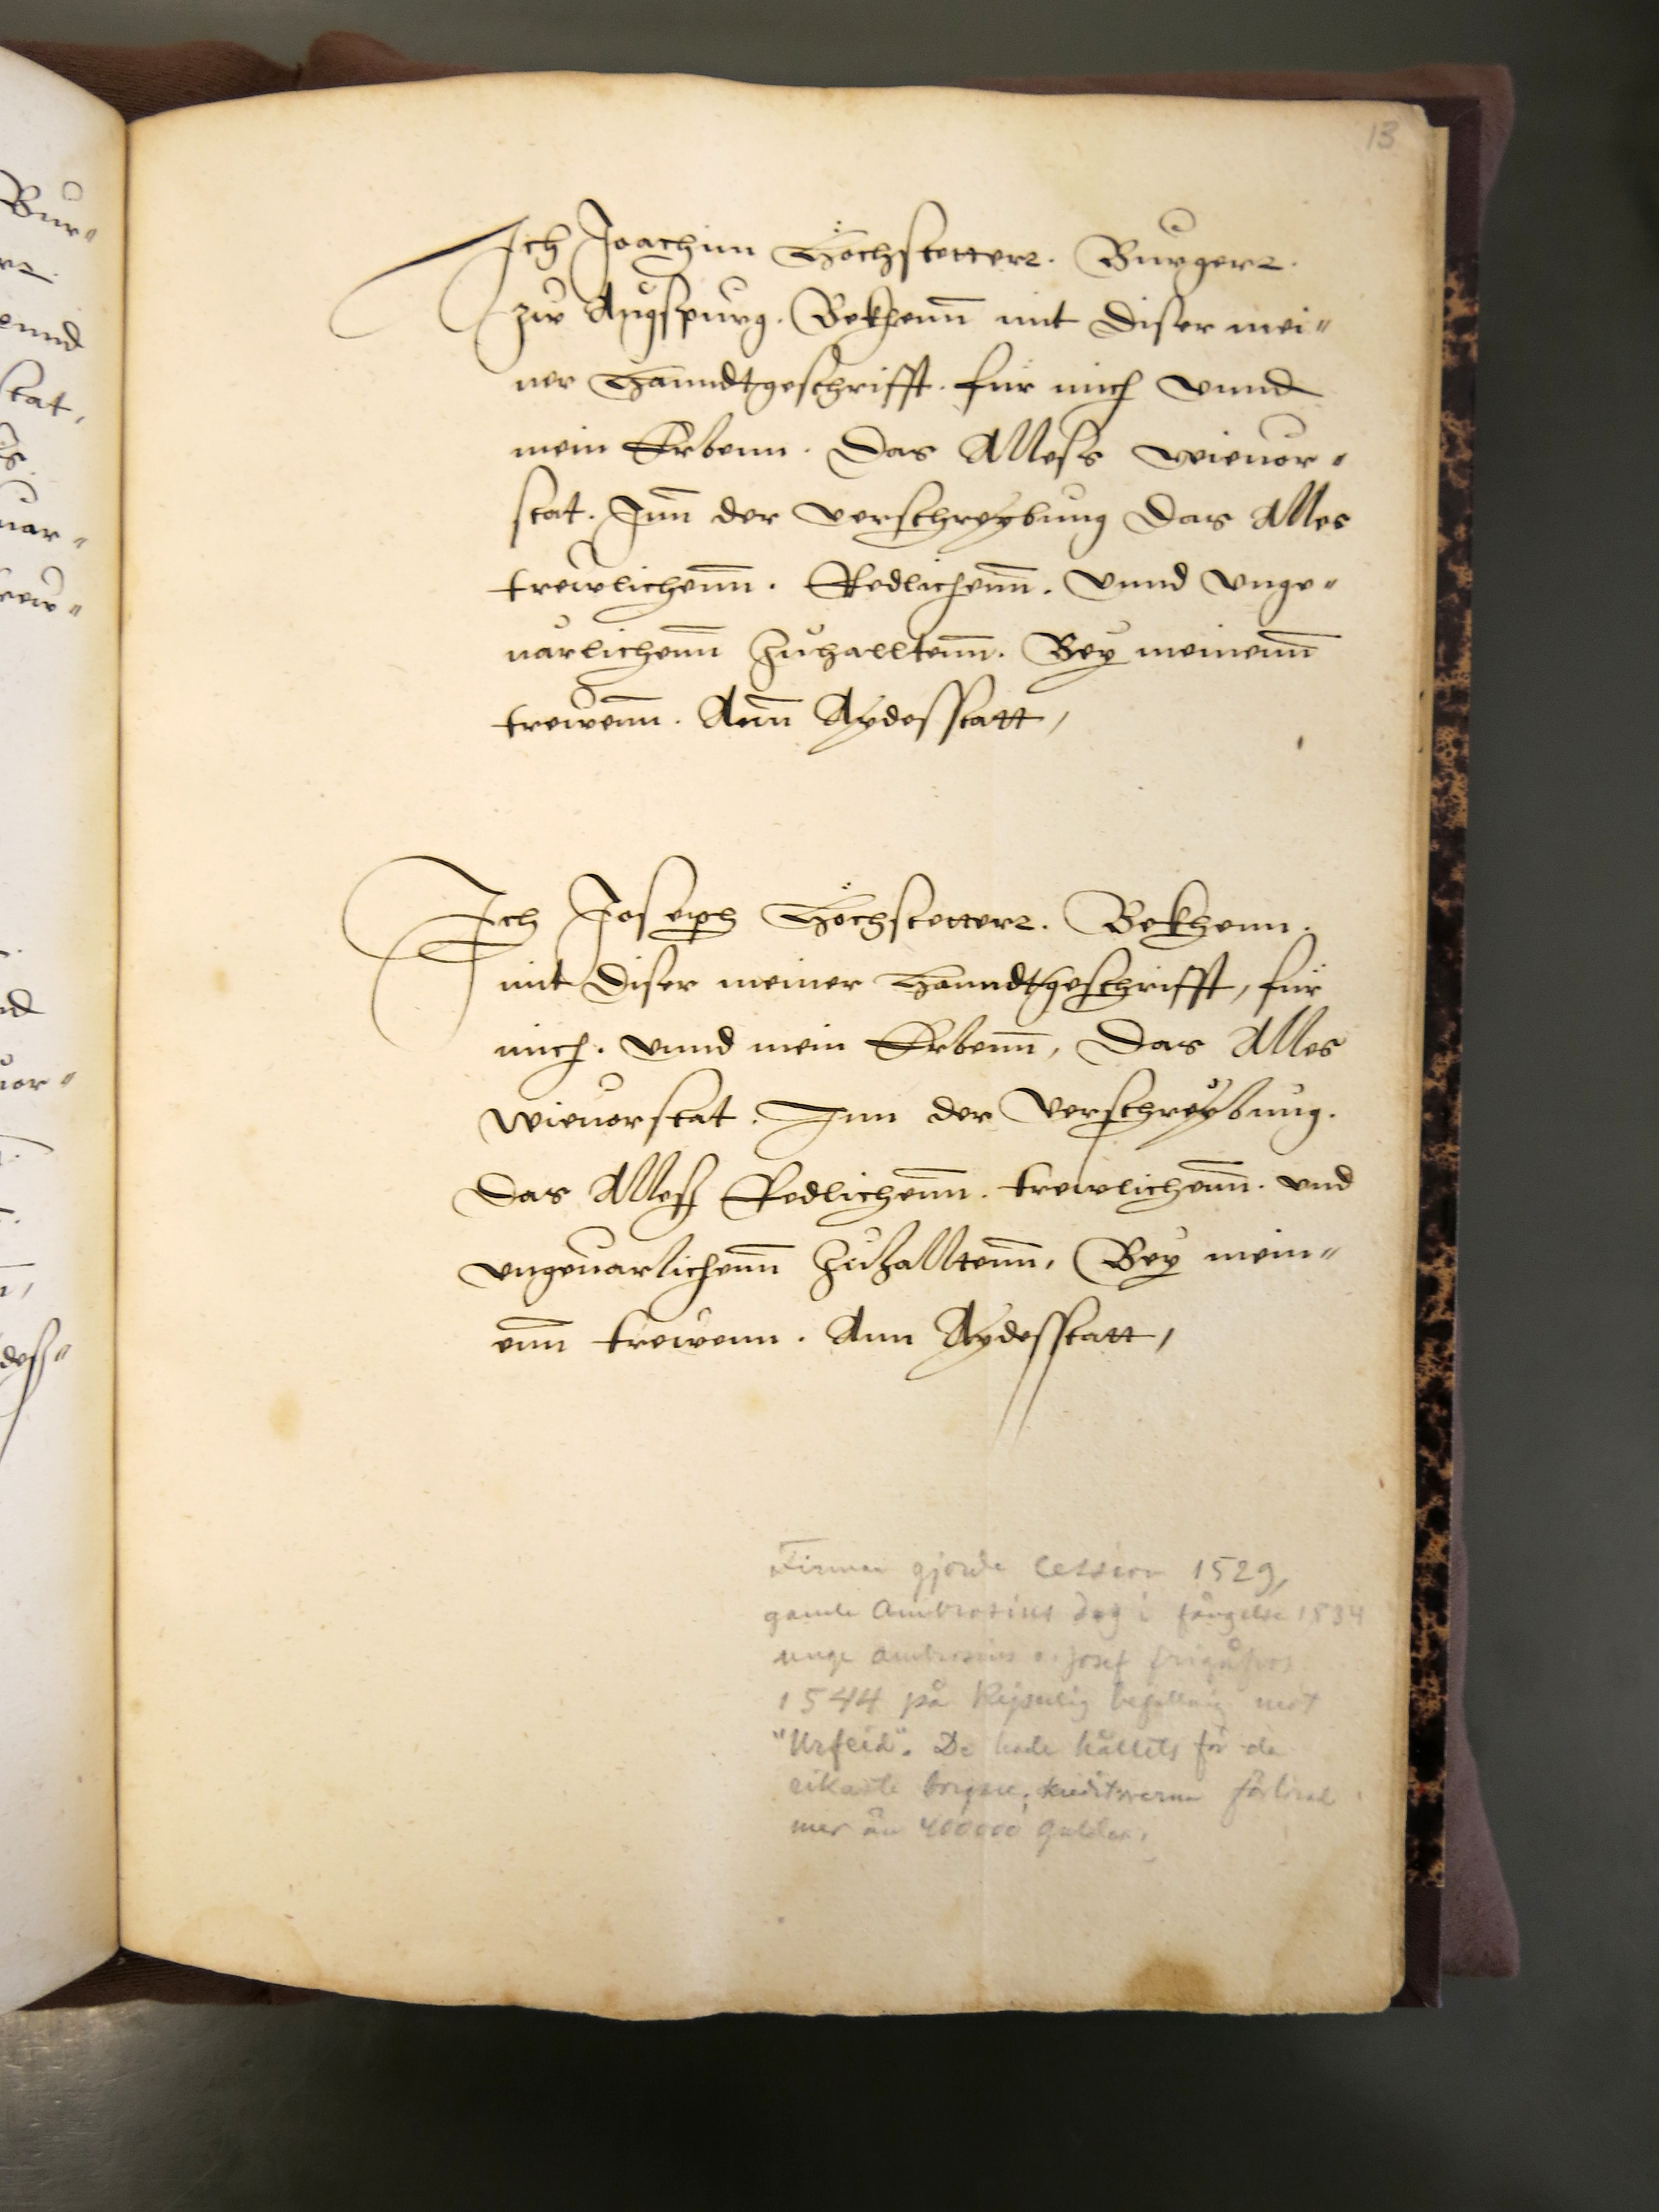 13
Ich Joachim Höchstetterr. Burgerr.
zw Augspurg. Bekhenn̄ mit diser mei"
ner Hanndtgeschrifft. für mich vnnd
mein Erbenn. Das Alless wieuor"
stat. Inn̄ der verschreybung Das Alles
trewlichenn̄. Redlichenn̄. vnnd vnge"
uarlichenn̄ Zuhalltenn̄. Bey meinenn̄
trewenn̄. Ann̄ Aydesstatt,
Ich Joseph Höchstetterr. Bekhenn.
mit diser meiner Hanndtgeschrifft, für
mich. vnnd mein Erbenn̄, Das Alles
wieuorstat. Inn der verschreybung.
Das Alless Redlichenn̄. trewlichenn̄. vnd
vngeuarlichenn̄ Zuhalltenn̄, Bey mein"
enn̄ trewenn. Ann Aydesstatt,
Firman gjorde cession 1529,
gamle Ambrosius dog i fängelse 1534
unge Ambrosius o. Josef frigåfvos
1544 på Kejserlig befallning mot
"Urfeid". De hade hållits för de
rikaste borgare, kreditorerna förlorad
mer än 400000 gulden.
Bur"
stat,
uar"
rew"
uor"